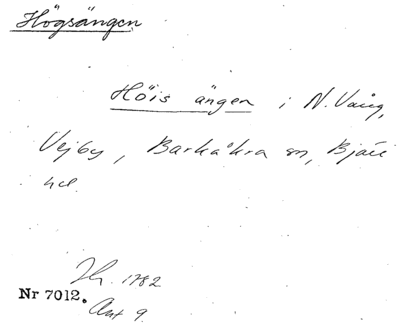 Högsängen
Höis ängen i N. Vång,
Vejby, Barkåkra sn, Bjäre
hd.
1782
Nr 7012.
Akt 9